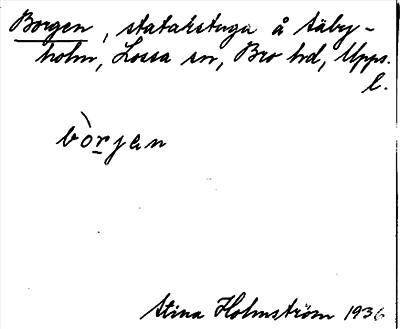 Borgen, statarstuga å Säby-
holm, Låssa sn, Bro hd, Upps.
l.
bòrjen
Stina Holmström 1936